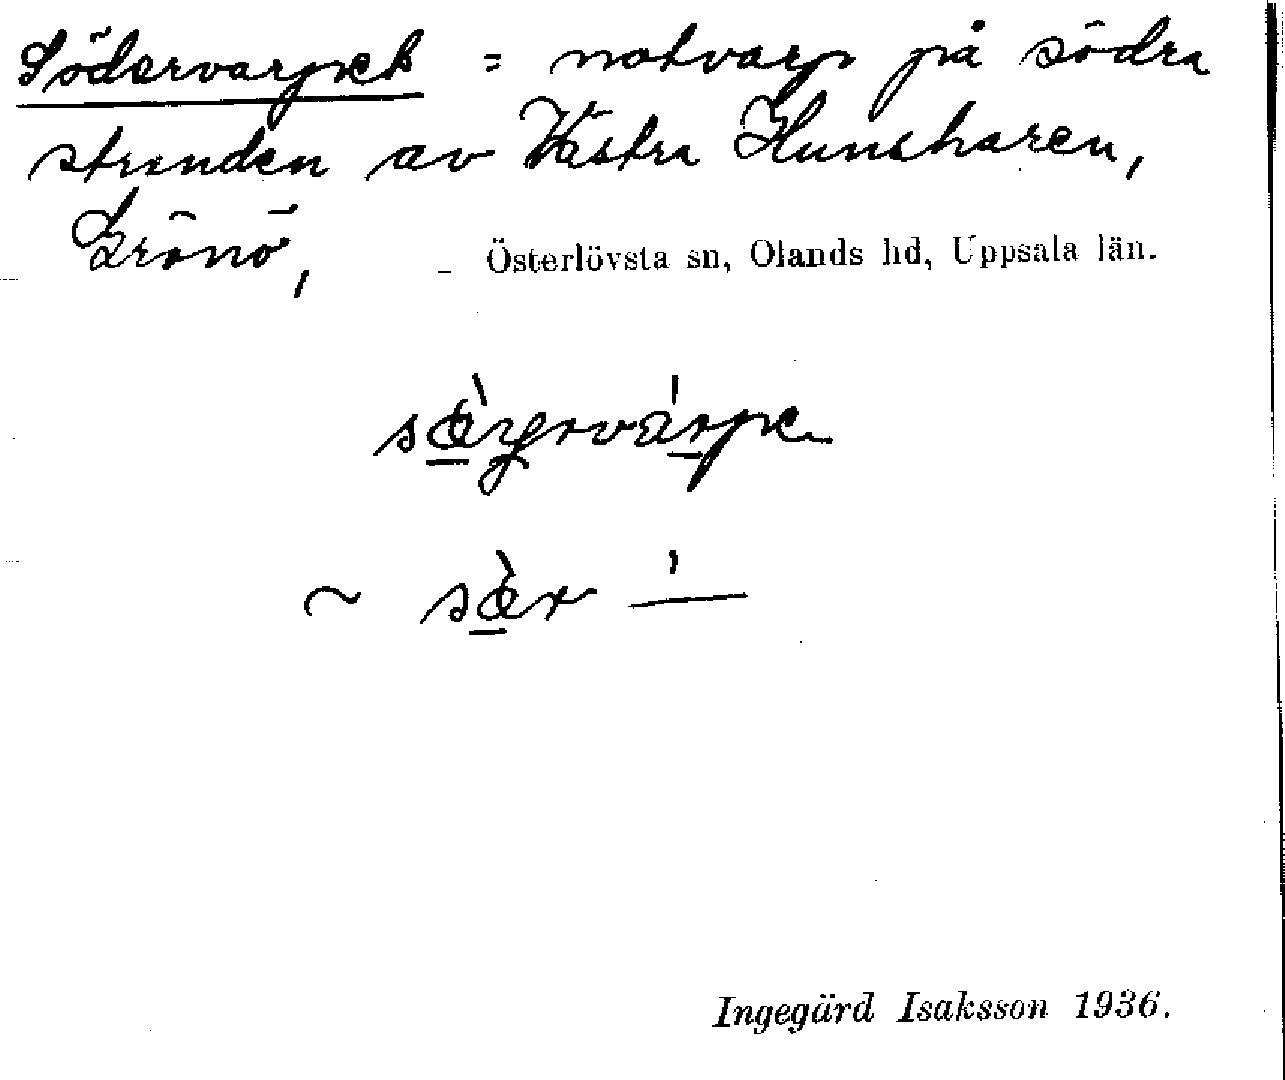 Södervarpet = notvarp på södra
stranden av Västra Hunsharen,
Grönö,
Österlövsta sn, Olands hd, Uppsala län.
Ingegärd Isaksson 1936.